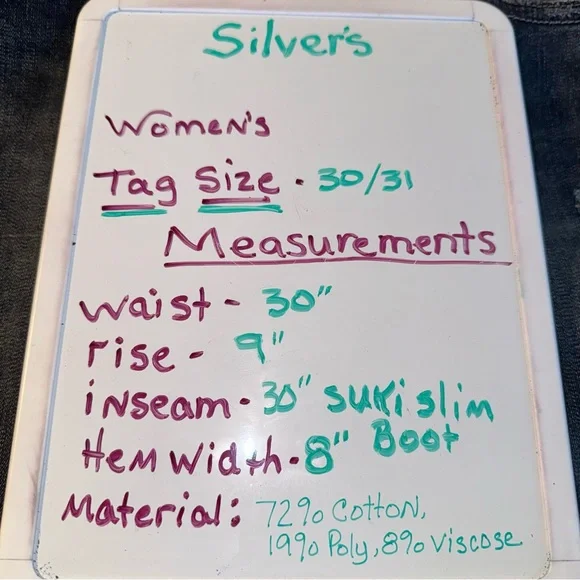 Silver's
Women's
Tag Size - 30/31
Measurements
waist - 30"
rise - 9"
inseam - 30" suki slim
Boot
Hem width - 8"
Material: 72% cotton,
19% Poly, 8% viscose